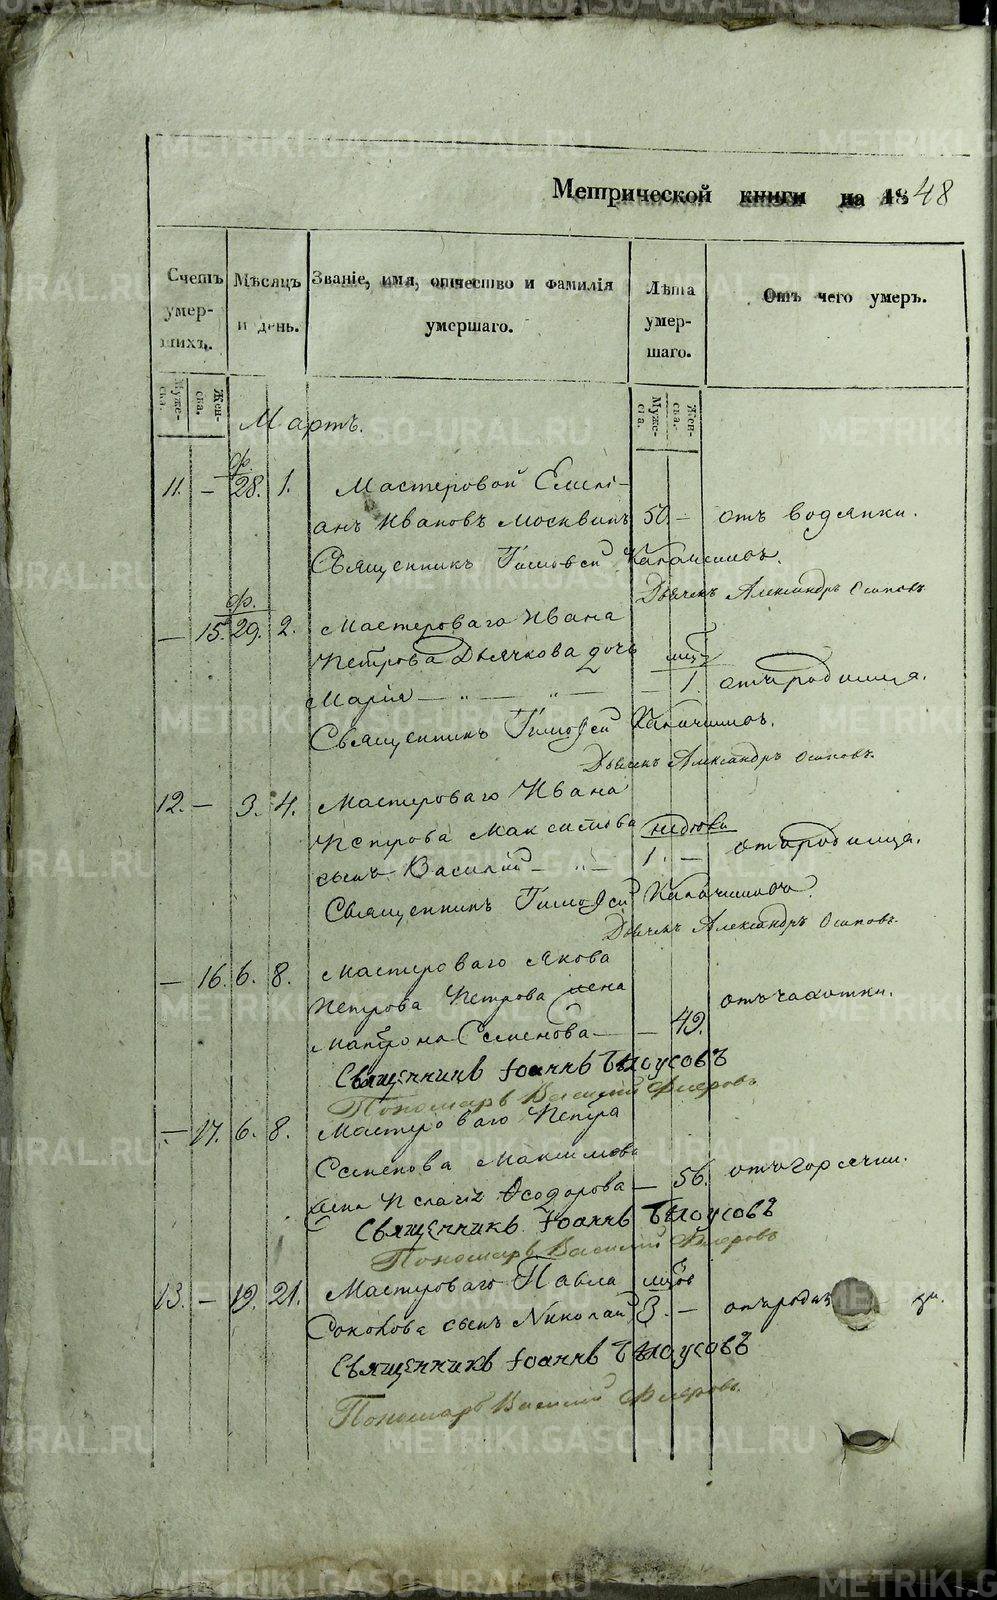 Метрической книги на 1848
Счетъ умер- шихъ.
Мѣсяцъ и день.
Званіе, имя, отчество и фамилія умершаго.
Лѣта умер- шаго.
Отъ чего умеръ.
Муже- ска.
Жен- ска.
Муже- ска.
Жен- ска.
Мартъ.
ф.
11. — 28. 1. Мастеровой Емелі-
анъ Ивановъ Москвинъ 50. — отъ водянки.
Священникъ Тимофей
Дьячекъ Александръ Осиповъ
ф.
— 15. 29. 2. Мастероваго Ивана
Петрова Дьячкова дочь
Марія — „ — „ — — 1. отъ родимца.
Священникъ Тимофей
Дьячекъ Александръ Осиповъ.
12. — 3. 4. Мастероваго Ивана
Петрова Максимова недѣли
сынъ Василій — „ — 1. — отъ родимца.
Священникъ Тимофей
Дьячекъ Александръ Осиповъ
— 16. 6. 8. Мастероваго Якова
Петрова Петрова жена
Матрона Семенова — — 49. отъ чахотки.
Священникъ Іоаннъ Бѣлоусовъ
Пономарь Василій Флеровъ
— 17. 6. 8. Мастероваго Петра
Семенова Максимова
жена Пелагія Ѳеодорова — 56. отъ горячки.
Священникъ Іоаннъ Бѣлоусовъ
Пономарь Василій Флеровъ
13. — 19. 21. Мастероваго Павла
Соколова сынъ Николай 3. — отъ родим
Священникъ Іоаннъ Бѣлоусовъ
Пономарь Василій Флеровъ.
METRIKI.GASO-URAL.RU